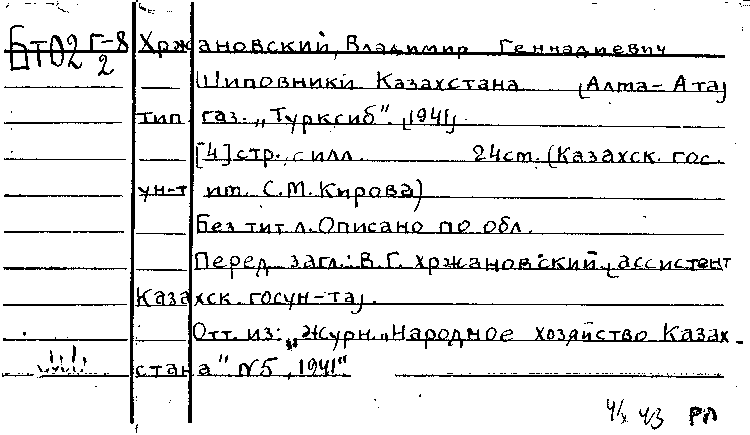 БТ02 Г-8 Хржановский, Владимир Геннадиевич
2
Шиповники Казахстана [Алма-Ата]
тип. газ. „Турксиб". [1941].
[4] стр., с илл. 24 см. (Казахск. гос.
ун-т им. С.М. Кирова)
Без тит. л. Описано по обл.
Перед загл.: В.Г. Хржановский, [ассистент
Казахск. госун-та].
Отт. из: „Журн. „Народное хозяйство Казах-
стана" №5, 1941"
43 РП